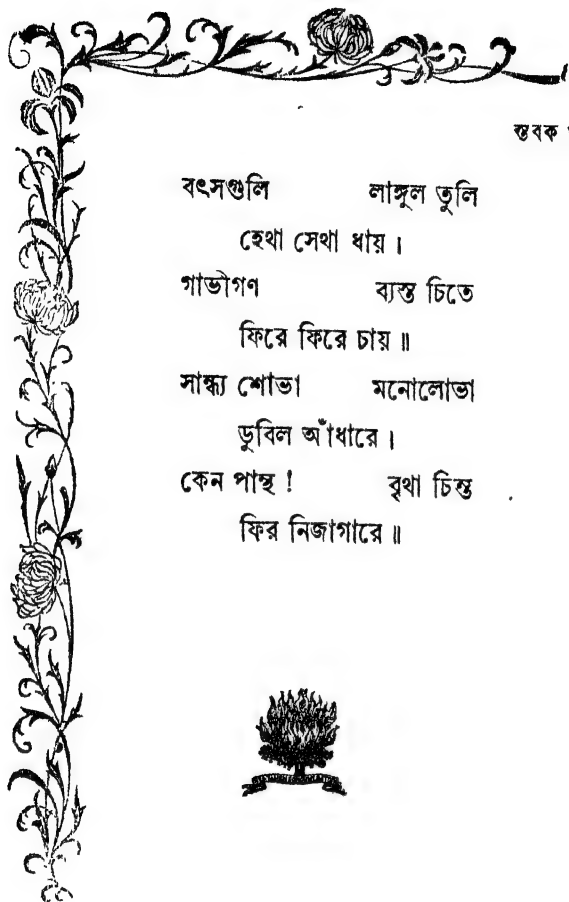 স্তবক
বৎসগুলি লাঙ্গুল তুলি
হেথা সেথা ধায় ।
গাভীগণ ব্যস্ত চিতে
ফিরে ফিরে চায় ॥
সান্ধ্য শোভা মনোলোভা
ডুবিল আঁধারে ।
কেন পান্থ ! বৃথা চিন্ত
ফির নিজাগারে ॥